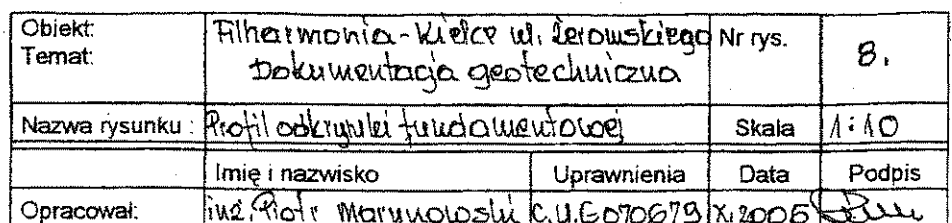 Obiekt: Filharmonia-Kielce ul. Żeromskiego Nr rys. 8.
Temat: Dokumentacja geotechniczna
Nazwa rysunku: Profil odkrywki fundamentowej Skala 1:10
Imię i nazwisko Uprawnienia Data Podpis
Opracował: inż. Piotr C.U.G070679 X.2005